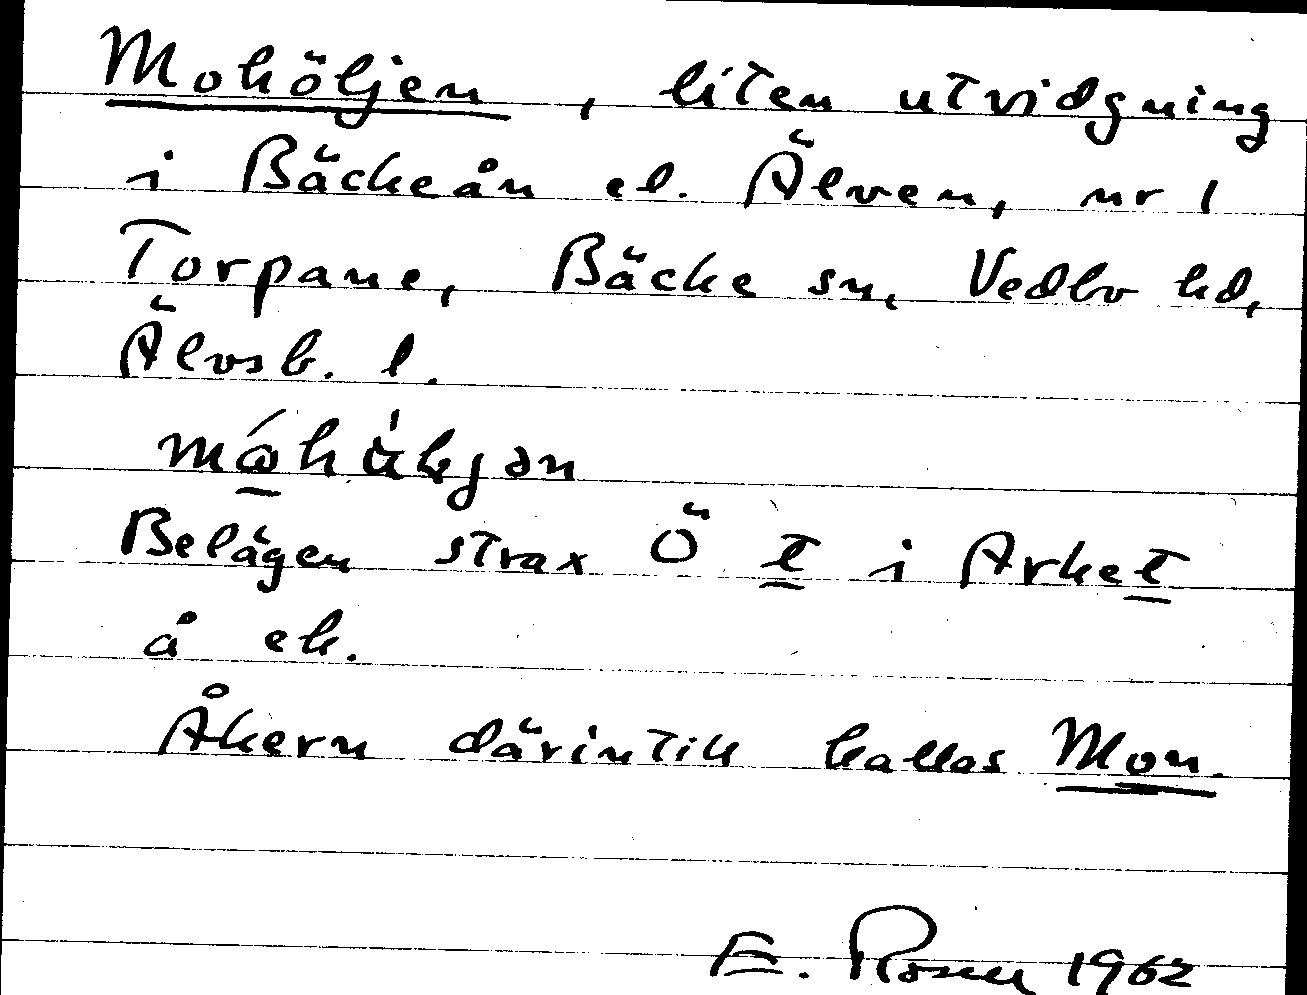 Mohöljen, liten utvidgning
i Bäckeån el. Älven, nr 1
Torpane, Bäcke sn, Vedbo hd,
Älvsb. l.
Belägen strax Ö t i Arket
å ek.
Åkern därintill kallas Mon.
E. Rosell 1962